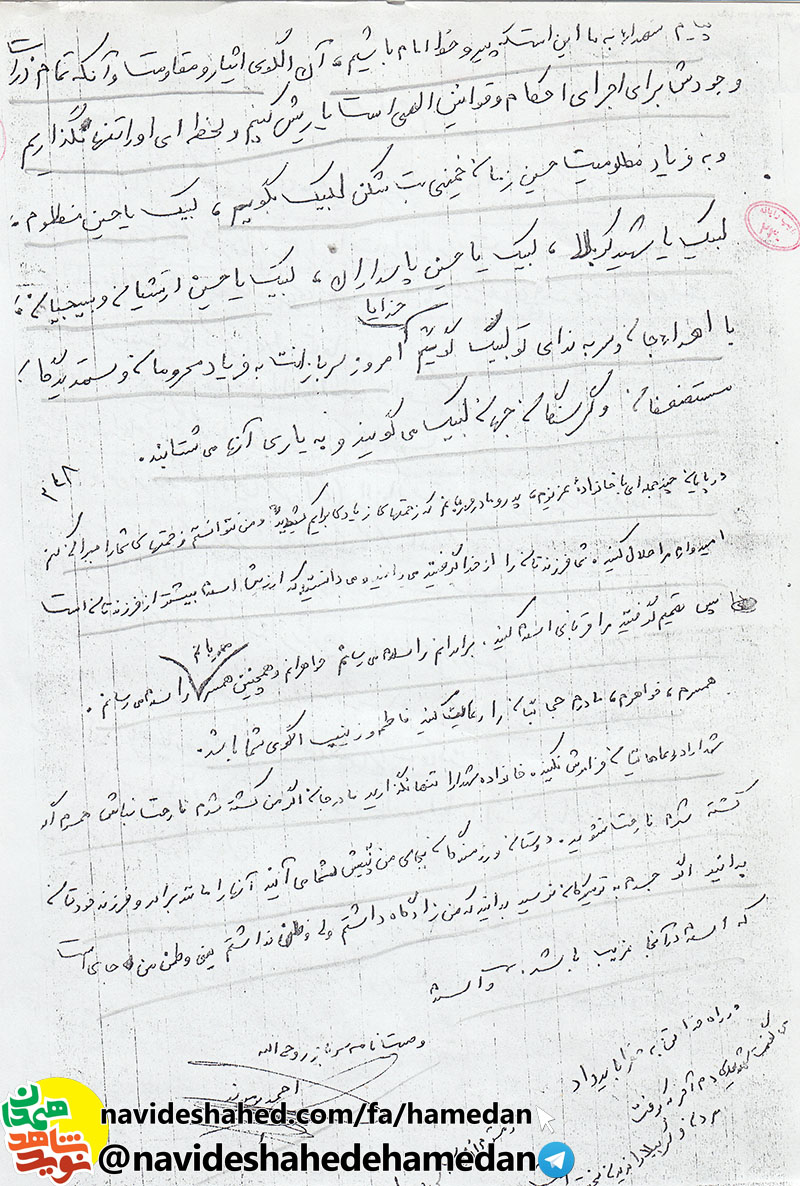 پیام شهداء به ما این است که پیرو خط امام باشیم، آن الگوی ایثار و مقاومت و آنکه تمام ذرات
وجودش برای اجرای احکام و قوانین الهی است یاریش کنیم و لحظه ای او را تنها نگذاریم
و به فریاد مظلومیت حسین زمان خمینی بت شکن لبیک بگوییم، لبیک یا حسین مظلوم،
لبیک یا شهید کربلا، لبیک یا حسین پاسداران، لبیک یا حسین ارتشیان و بسیجیان،
خدایا
با اهداء جان و سر به ندای تو لبیک گوئیم امروز سربازانت به فریاد محرومان و ستمدیدگان
مستضعفان و گرسنگان جهان لبیک می گویند و به یاری آنها می شتابند.
۳۴۸
در پایان چند جمله ای با خانواده عزیزم، پدر و مادر مهربانم که زحمتهای زیادی برایم کشیدید و من نتوانستم زحمتهای شما را جبران کنم
امیدوارم مرا حلال کنید. شما فرزندتان را از خدا گرفتید می دانید و می دانستید که ارزش اسلام بیشتر از فرزندتان است
پس تصمیم گرفتید مرا قربانی اسلام کنید. برادرانم را سلام می رسانم خواهرانم و همچنین همسر را سلام می رسانم.
مهربانم
همسرم، خواهرم، مادرم حجابتان را رعایت کنید فاطمه و زینب الگوی شما باشد.
شهدا را در دعاهایتان فراموش نکنید. خانواده شهدا را تنها نگذارید مادر جان اگر من کشته شدم ناراحت نباش همسرم اگر
کشته شدم ناراحت نشوید. دوستان و رزمندگان بجای من پیش شما می آیند آنها را مانند برادر و فرزند خودتان
بدانید اگر جسدم به تویسرکان نرسید بدانید که من زادگاه داشتم ولی وطن نداشتم یعنی وطن من جای است
که اسلام در آنجا غریب باشد. والسلام
وصیت نامه سرباز روح الله
احمد
در راه خدا تن به قضا باید داد
navideshahed.com/fa/hamedan
@navideshahedehamedan
نوید شاهد همدان